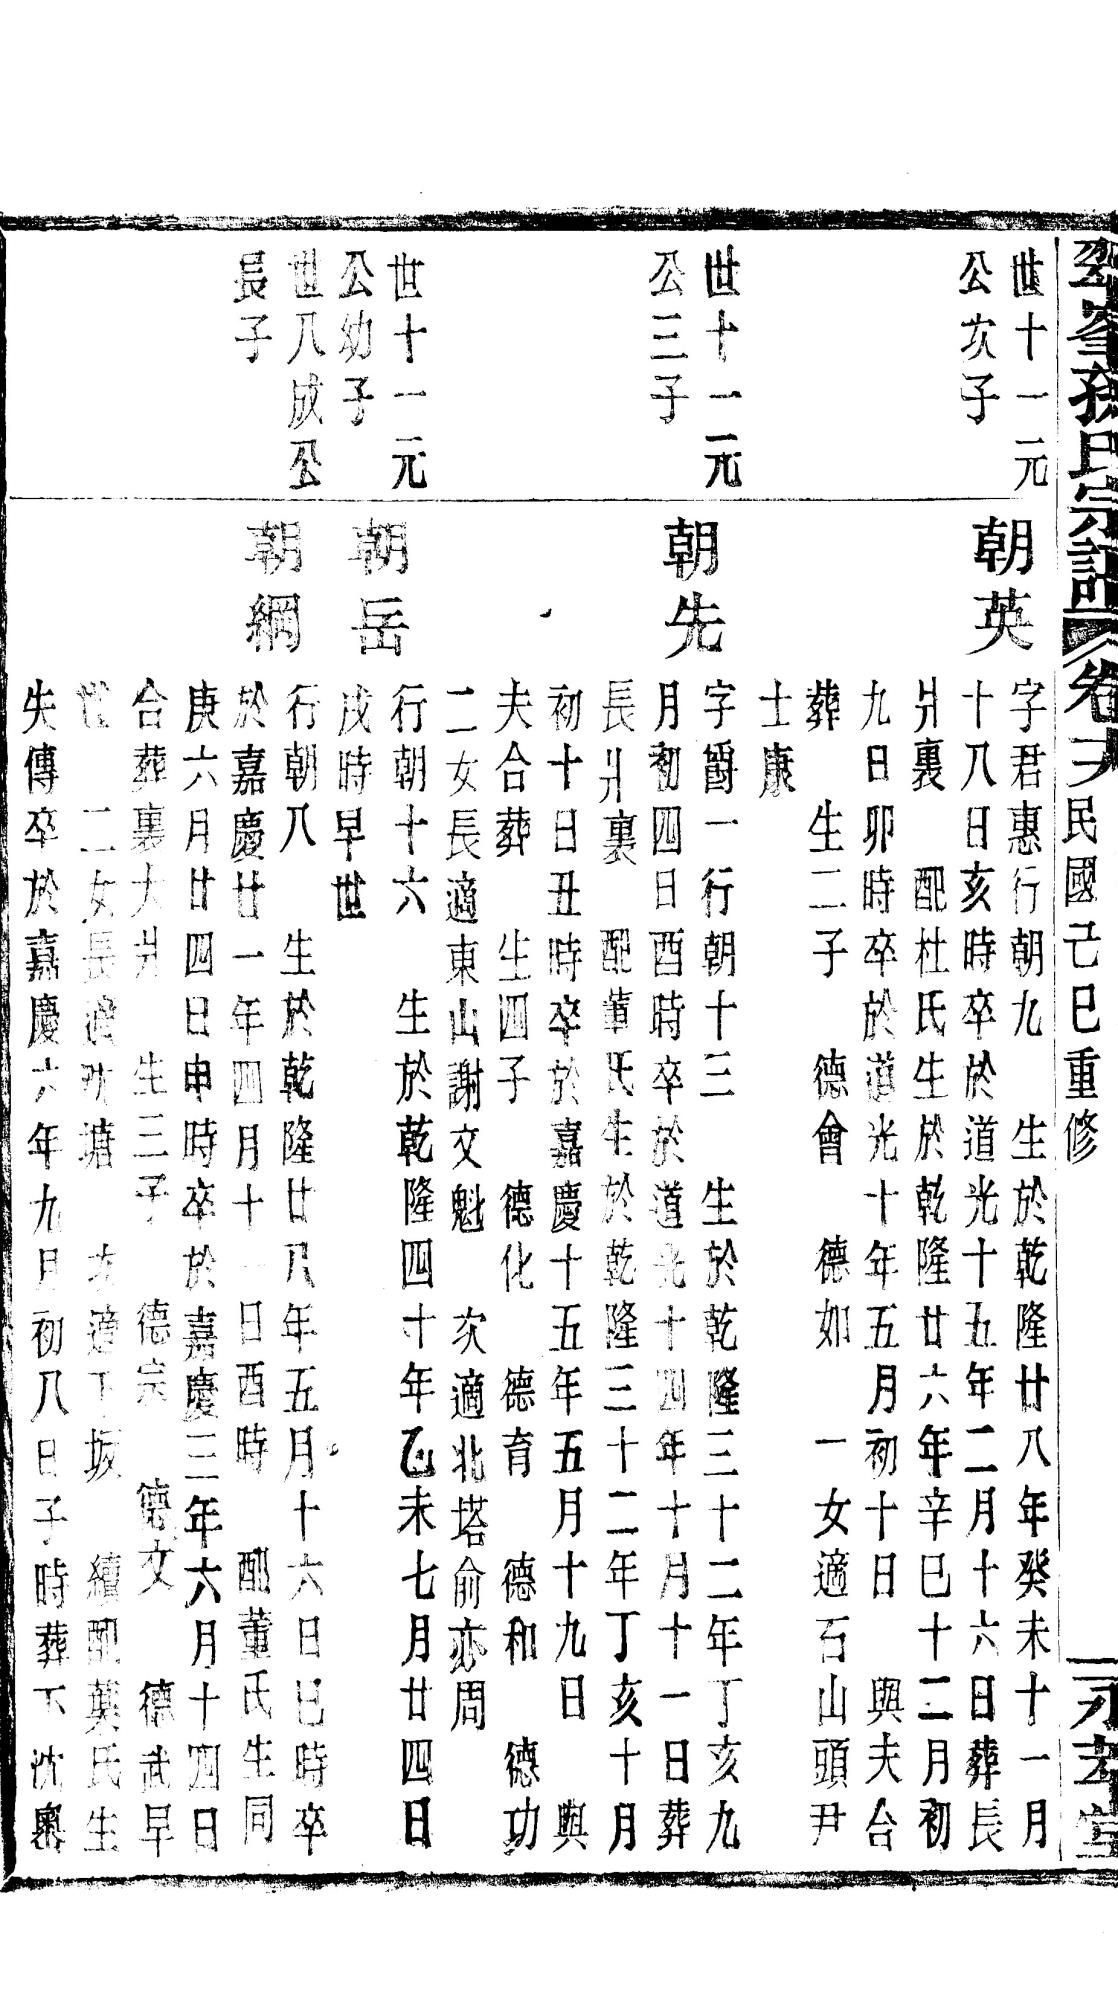 峯孫氏宗譜 卷 民國己巳重修 永孝堂
世十一元
公次子
朝英
字君惠行朝九 生於乾隆廿八年癸未十一月
十八日亥時卒於道光十五年二月十六日葬長
爿裏 配杜氏生於乾隆廿六年辛巳十二月初
九日卯時卒於道光十年五月初十日 與夫合
葬 生二子 德會 德如 一女適石山頭尹
士康
世十一元
公三子
朝先
字爵一行朝十三 生於乾隆三十二年丁亥九
月初四日酉時卒於道光十四年十月十一日葬
長爿裏 配董氏生於乾隆三十二年丁亥十月
初十日丑時卒於嘉慶十五年五月十九日 與
夫合葬 生四子 德化 德育 德和 德功
二女長適東山謝文魁 次適北塔俞亦周
世十一元
公幼子
朝岳
行朝十六 生於乾隆四十年乙未七月廿四日
戌時早世
世八成公
長子
朝綱
行朝八 生於乾隆廿八年五月十六日巳時卒
於嘉慶廿一年四月十一日酉時 配董氏生同
庚六月廿四日申時卒於嘉慶三年六月十四日
合葬裏大爿 生三子 德宗 德文 德武早
世 二女長適 塘 次適下坂 續配 氏生
失傳卒於嘉慶六年九月初八日子時葬下沈奧